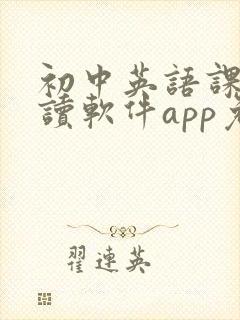 初中英語課
讀軟件app免
翟連英